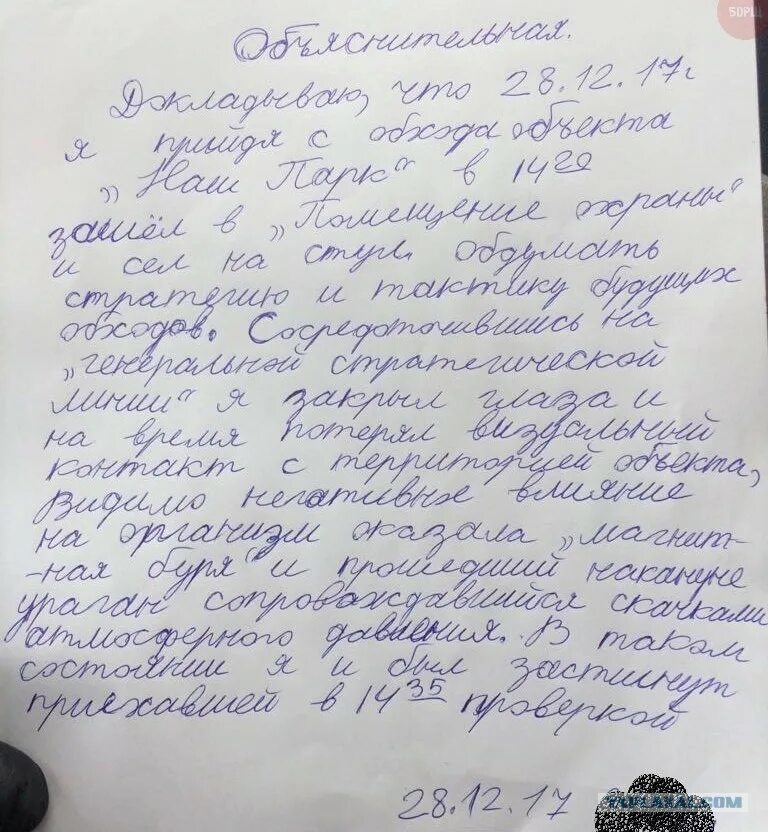 БОРЩ
Объяснительная.
Докладываю, что 28.12.17г
я прийдя с обхода объекта
„Наш Парк“ в 14 20
зашёл в „Помещение охраны“
и сел на стул. обдумать
стратегию и тактику будущих
обходов. Сосредоточившись на
„генеральной стратегической
линии“ я закрыл глаза и
на время потерял визуальный
контакт с территорией объекта,
видимо негативные влияние
на организм оказала „магнит-
-ная буря“ и прошедший накануне
ураган сопровождавшийся скачками
атмосферного давления. В таком
состоянии я и был застигнут
приехавшей в 14 35 проверкой
28.12.17
YAPLAKAL.COM